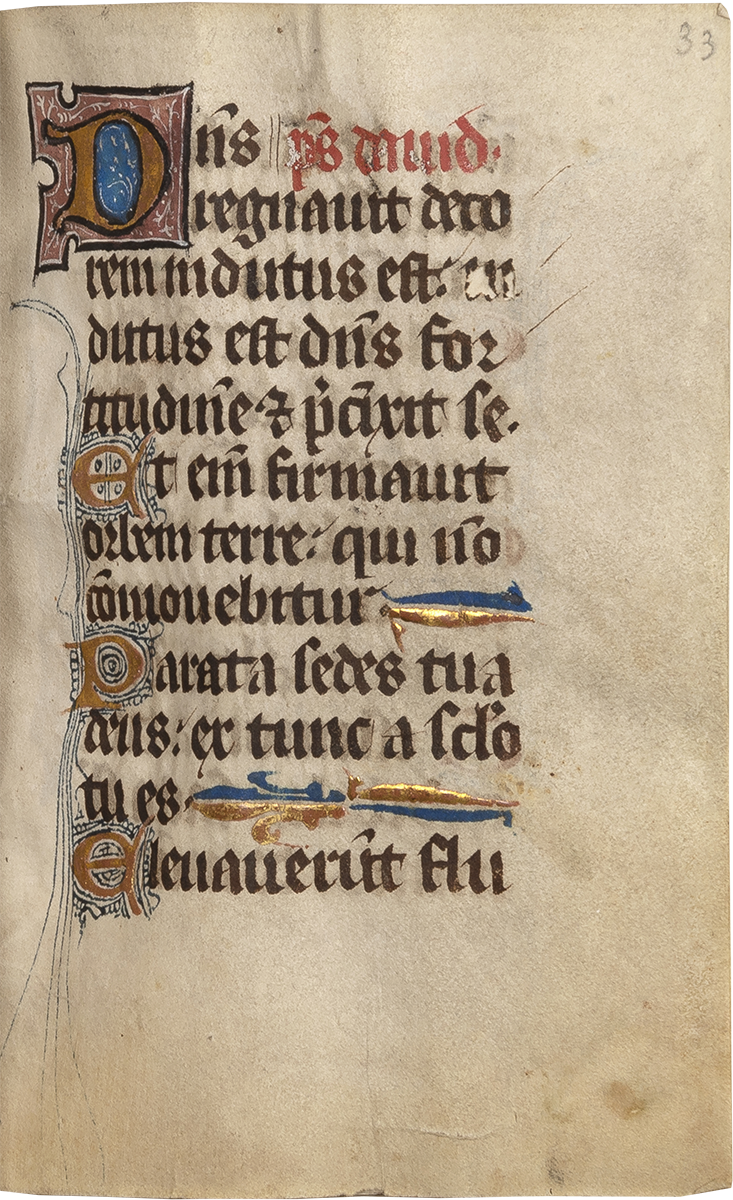 33
Dn̄s ps̄ dauid.
regnauit deco
rem indutus est: in
dutus est dn̄s for
titudine ⁊ p̄cīxit se.
Et em̄ firmauit
orbem terre: qui nō
cōmouebitur
Parata sedes tua
deus: ex tunc a sclo
tu es.
Eleuauerūt flu